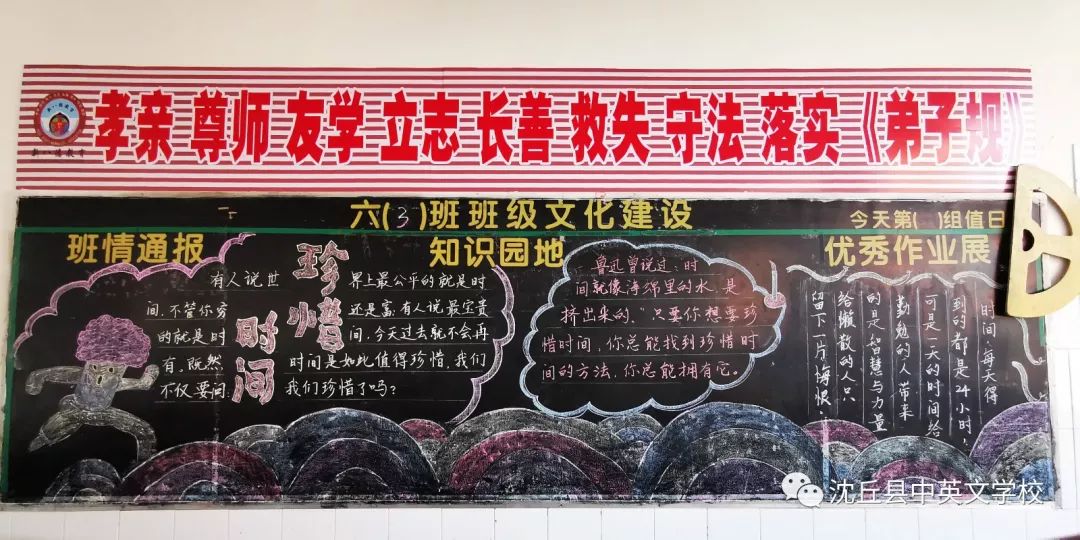 孝亲 尊师 友学 立志 长善 救失 守法 落实《弟子规》
六(3)班班级文化建设
班情通报
知识园地
今天第( )组值日
优秀作业展
珍惜时间
有人说世界上最公平的就是时
间，不管你穷还是富，有人说最宝贵
的就是时间，今天过去就不会再
有，既然时间是如此值得珍惜，我们
不仅要问：我们珍惜了吗？
鲁迅曾说过：时
间就像海绵里的水，是
挤出来的，"只要你想要珍
惜时间，你总能找到珍惜时
间的方法，你总能拥有它。
时间，每天得
到的都是24小时，
可是一天的时间给
勤勉的人带来
的是智慧与力量
给懒散的人只
留下一片悔恨，
沈丘县中英文学校